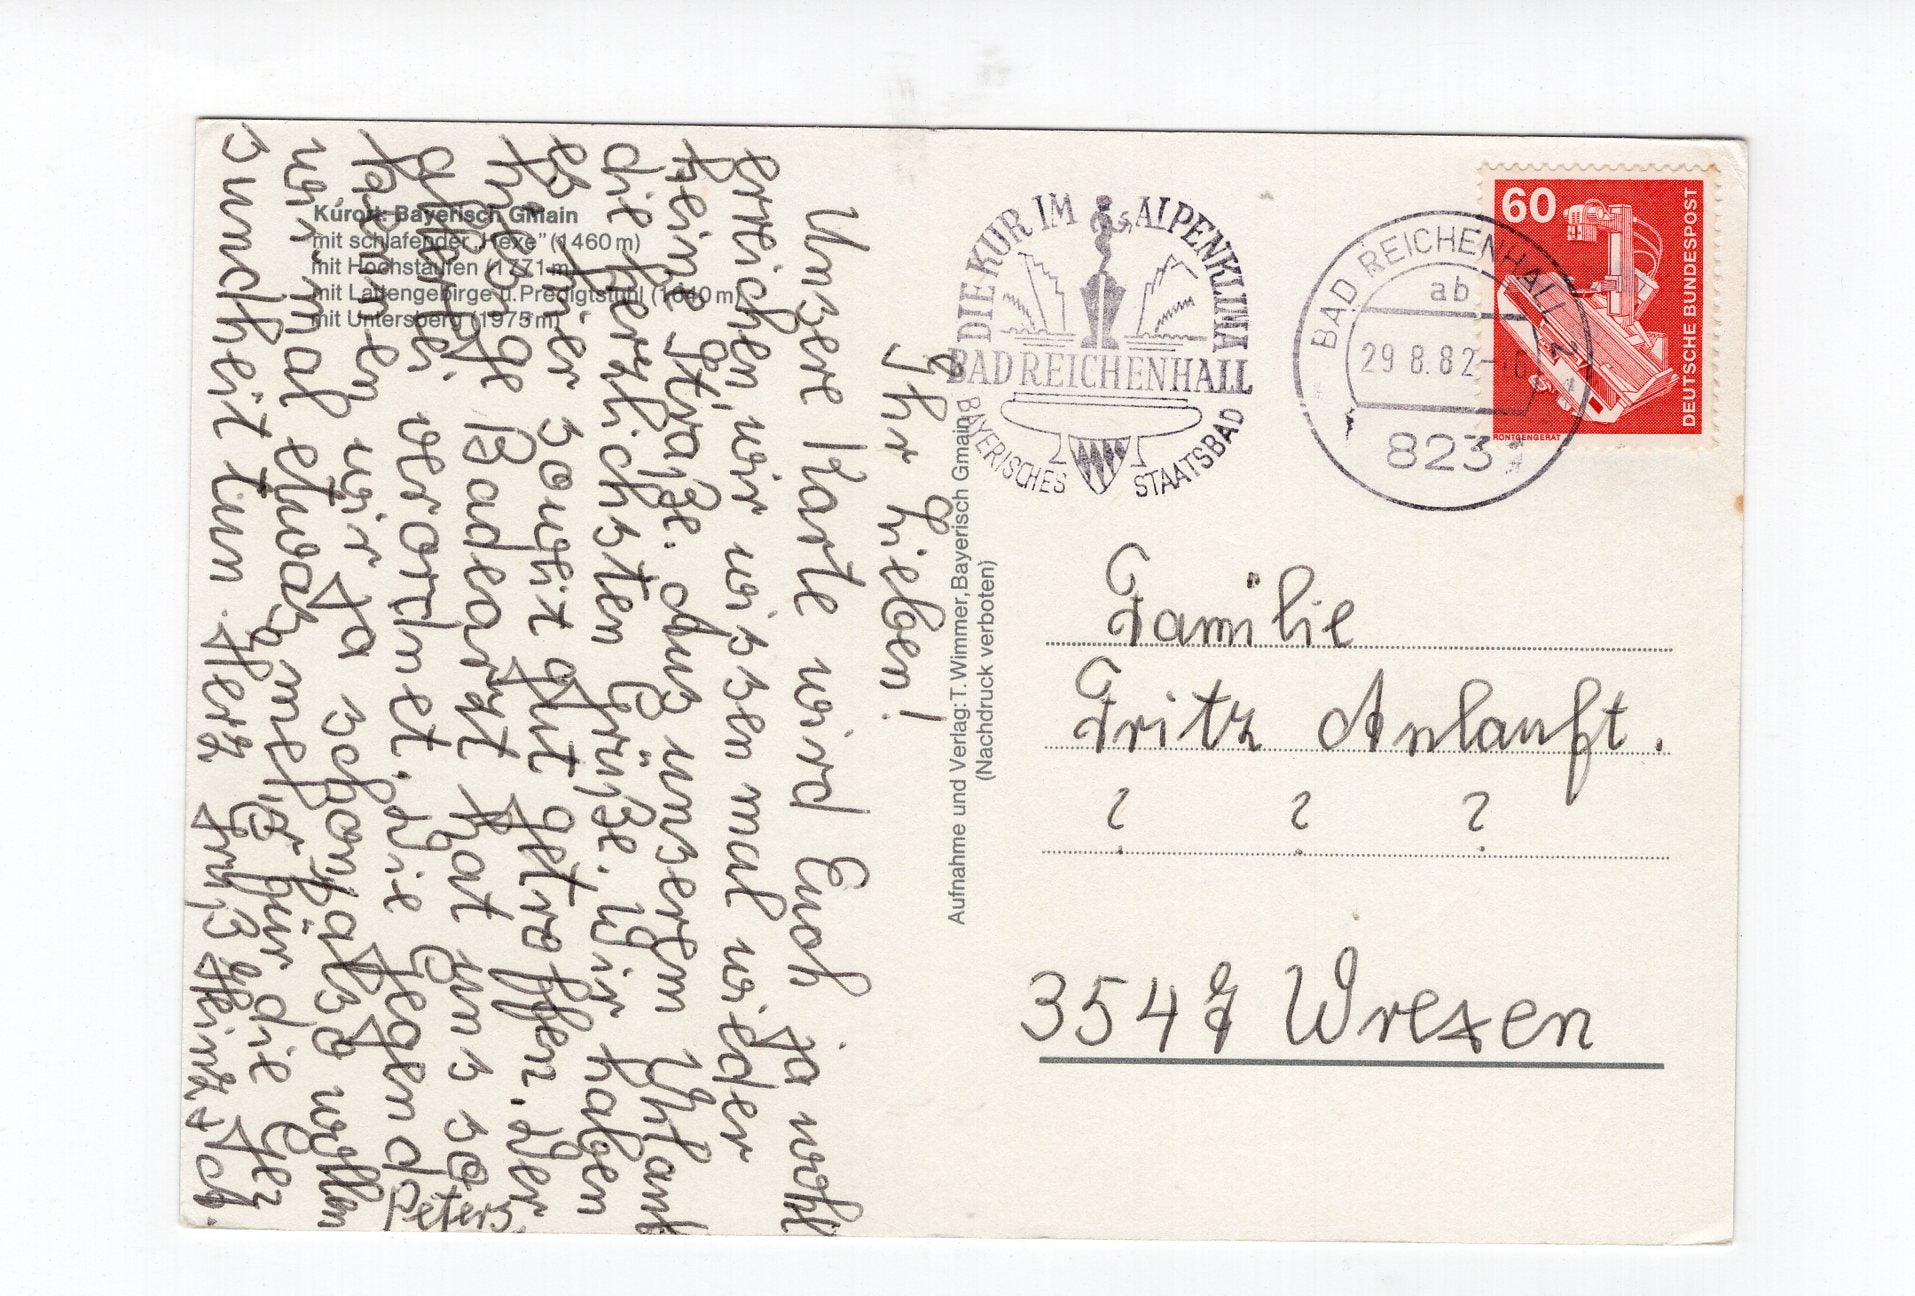 Kurort: Bayerisch Gmain
mit schlafender „Hexe" (1460 m)
mit Hochstaufen (1771 m)
mit Lattengebirge u. Predigtstuhl (1640 m)
mit Untersberg (1975 m)
Ihr Lieben!
Unsere Karte wird Euch ja wohl
erreichen, wir wissen mal wieder
keine Straße. Aus unserem Uhlamb
die herzlichsten Grüße. Wir haben
es hier soweit gut getroffen. Der
hisige Badearzt hat uns so
allerlei verordnet. Die Gegend
kannten wir ja schon, also wollen
wir mal etwas mehr für die Ge=
sundheit tun. Herz Gruß Heinz + Ich.
Peters.
Aufnahme und Verlag: T. Wimmer, Bayerisch Gmain
(Nachdruck verboten)
DIE KUR IM ALPENKLIMA
BAD REICHENHALL
BAYERISCHES STAATSBAD
BAD REICHENHALL 2
ab
29.8.82
823
60
DEUTSCHE BUNDESPOST
RÖNTGENGERÄT
Familie
Fritz Anlauft.
? ? ?
3547 Wrexen